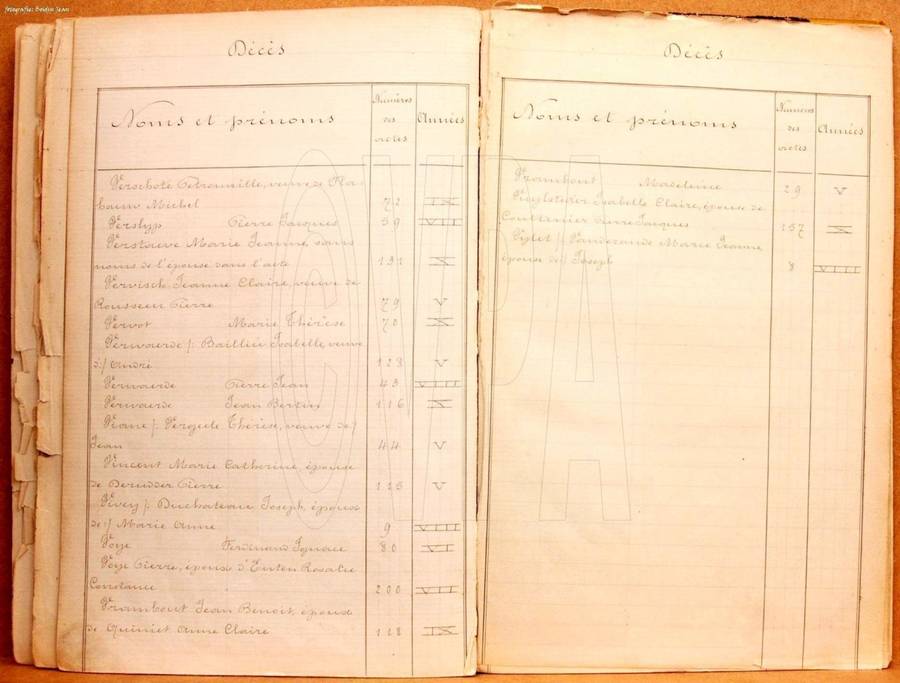 fotografie: Boidin Jean
Décès
Noms et prénoms
Numéros des actes
Années
Verschote Petronnille, veuve de
Michel 72 IX
Verslyp Pierre Jacques 59 VIII
Verstaeve Marie Jeanne, sans
noms de l'époux dans l'acte 191 X
Vervisch Jeanne Claire, veuve de
Rousseeu Pierre 79 V
Vervot Marie Thérèse 70 X
Verwaerde /: Baillieu Isabelle, veuve
d:/ André 128 V
Verwaerde Pierre Jean 43 VIII
Verwaerde Jean Bertin 116 X
Viane /: Thérèse, veuve de:/
Jean 44 V
Vincent Marie Catherine, épouse
de Derudder Pierre 115 V
Vivey /: Duchateau Joseph, époux
de:/ Marie Anne 9 VIII
Voye Ferdinand Ignace 80 VI
Voye Pierre, époux d'Enten Rosalie
Constance 200 VII
Vrambout Jean Benoit, époux
de Quiniet Anne Claire 128 IX
Décès
Noms et prénoms
Numéros des actes
Années
Vrambout Madeleine 29 V
Isabelle Claire, épouse de
Couttenier Pierre Jacques 157 X
/: Vandezande Marie Jeanne,
épouse de:/ Joseph 8 VIII